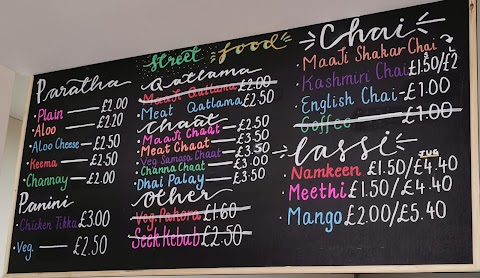 street food
Paratha
Plain £2.00
Aloo £2.20
Aloo Cheese £2.50
Keema £2.50
Channay £2.00
Panini
Chicken Tikka £3.00
Veg. £2.50
Qatlama
MaaJi Qatlama £2.00
Meat Qatlama £2.50
Chaat
MaaJi Chaat £2.50
Meat Chaat £3.50
Veg Samosa Chaat £3.50
Channa Chaat £3.00
Dhai Palay £3.50
Other
Veg. Pakora £1.60
Seek Kebub £2.50
Chai
MaaJi Shakar Chai £2
Kashmiri Chai £1.50/£2
English Chai £1.00
Coffee £1.00
Lassi
JUG
Namkeen £1.50/£4.40
Meethi £1.50/£4.40
Mango £2.00/£5.40